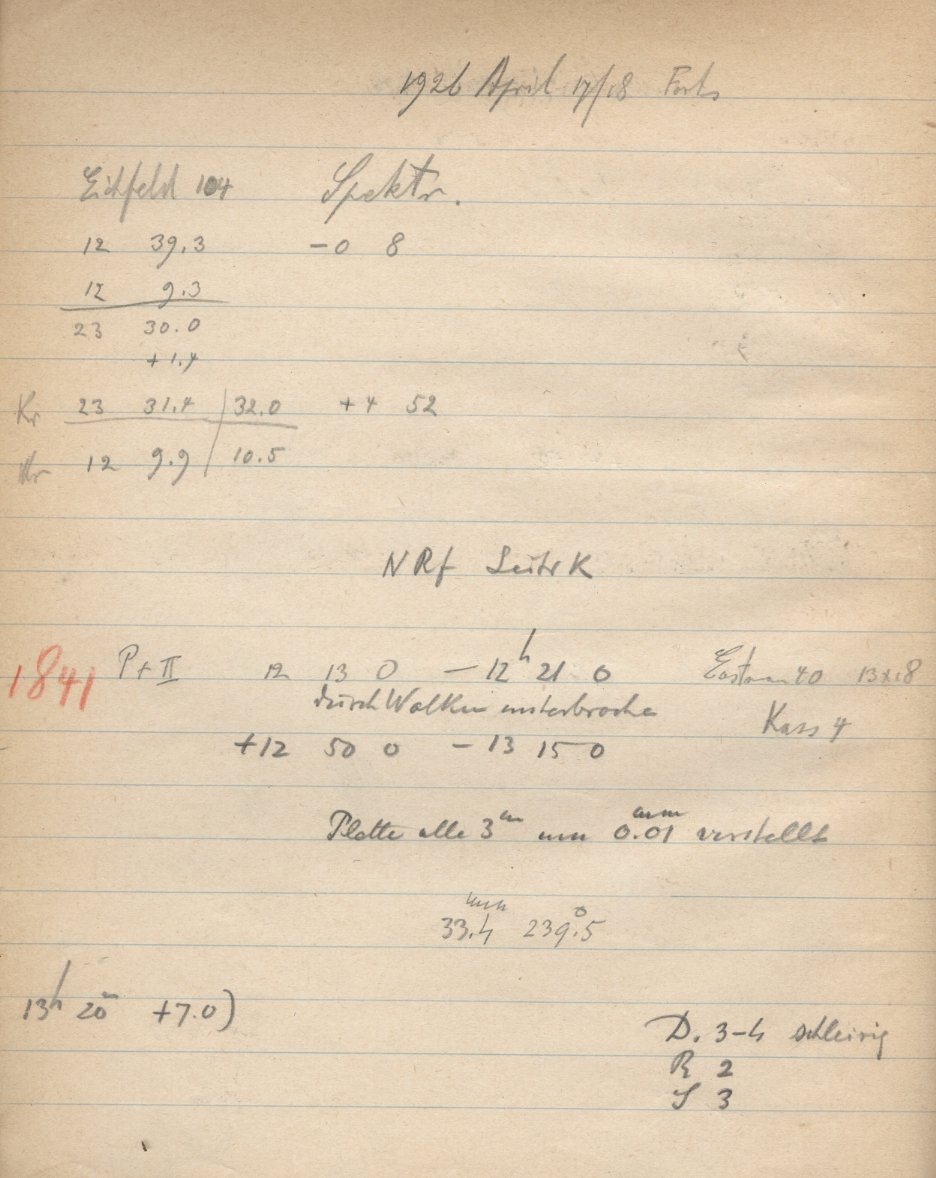 1926 April 17/18 Forts
Eichfeld 104 Spektr.
12 39.3 -0 8
12 9.3
23 30.0
+1.4
Kr 23 31.4 | 32.0 +4 52
Ur 12 9.9 | 10.5
N Rf Leitr K
1841 P+II 12 13 0 — 12h 21 0 Eastman 40 13x18
durch Wolken unterbrochen Kass 4
+12 50 0 - 13 15 0
Platte alle 3m um 0.01mm verstellt
33.4mm 239°.5
13h 20m +7.0)
D. 3-4 schleirig
R 2
S 3